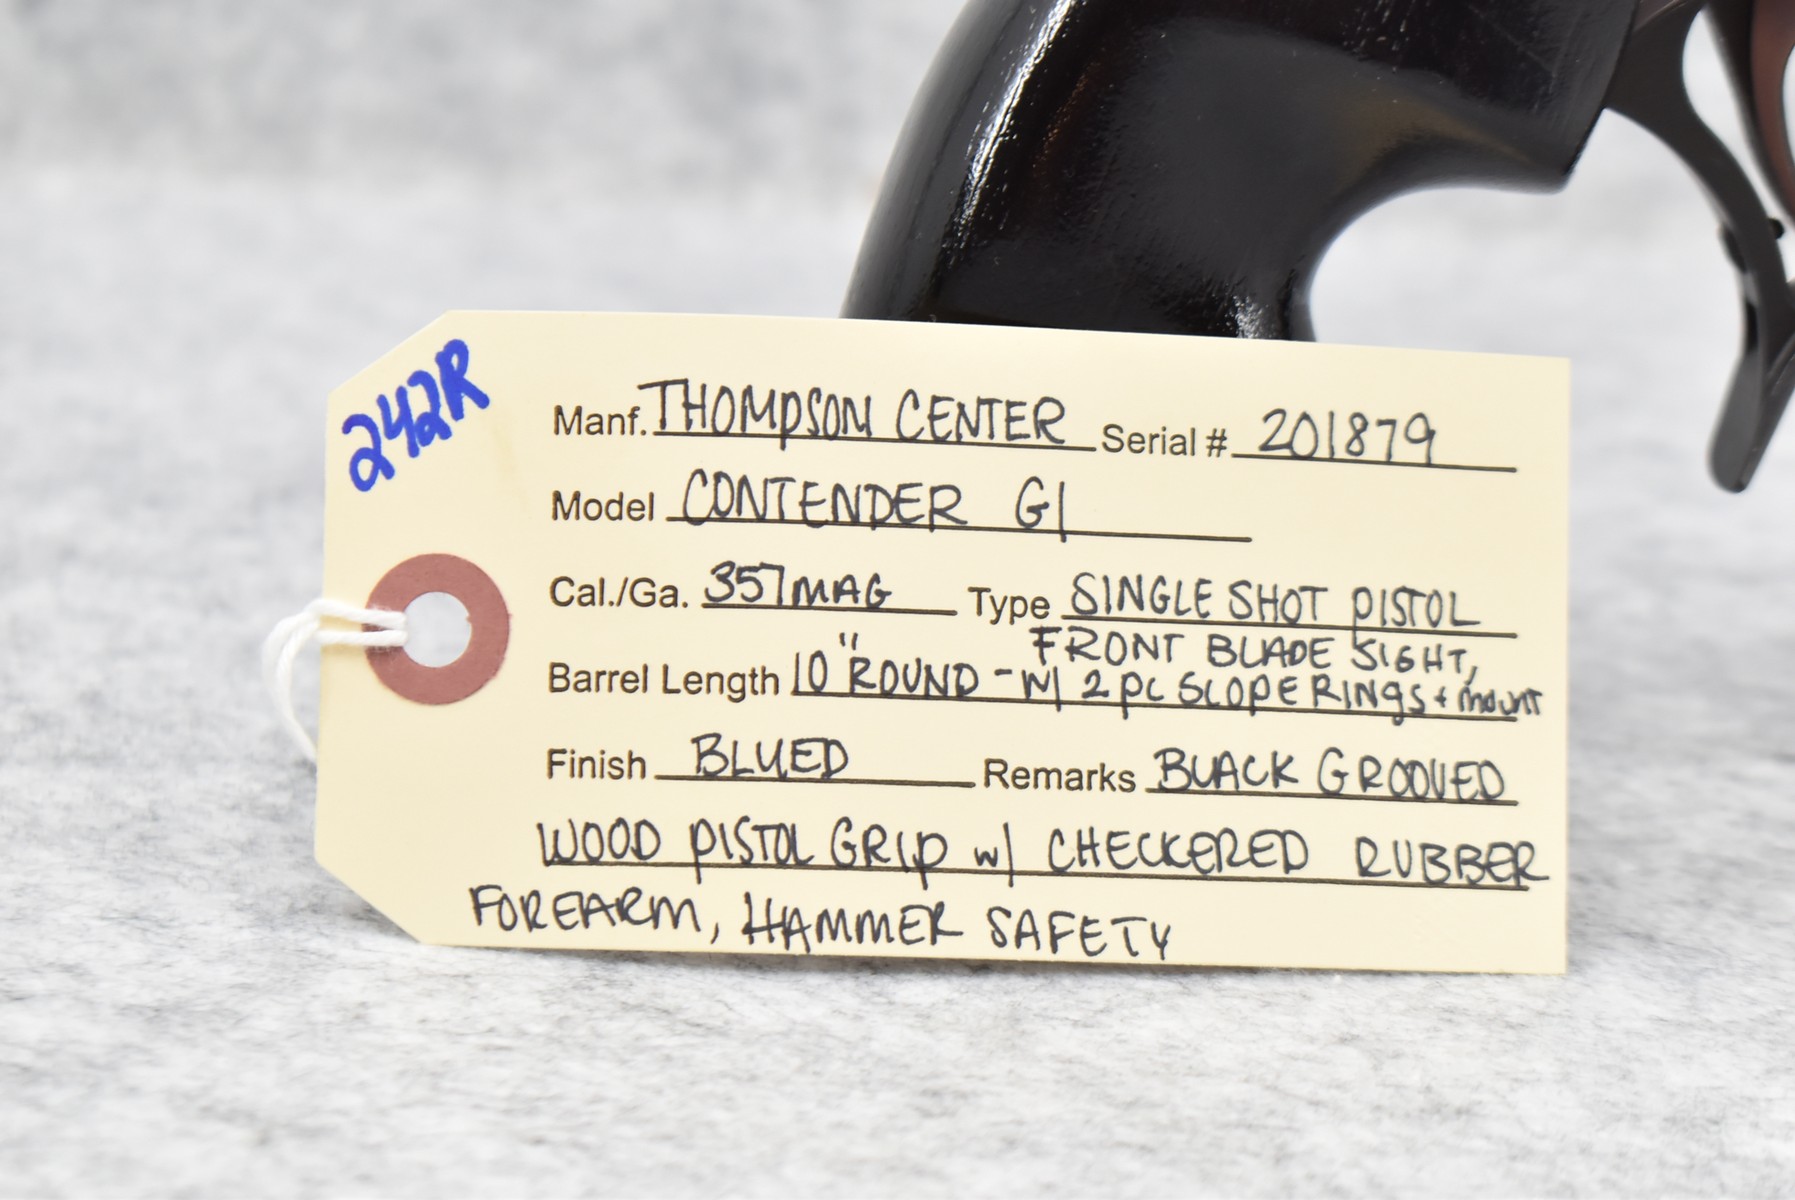 242R
Manf. THOMPSON CENTER Serial # 201879
Model CONTENDER G1
Cal./Ga. 357 MAG Type SINGLE SHOT PISTOL
FRONT BLADE SIGHT,
Barrel Length 10" ROUND - W/ 2 PC SCOPE RINGS + mount
Finish BLUED Remarks BLACK GROOVED
WOOD PISTOL GRIP w/ CHECKERED RUBBER
FOREARM, HAMMER SAFETY